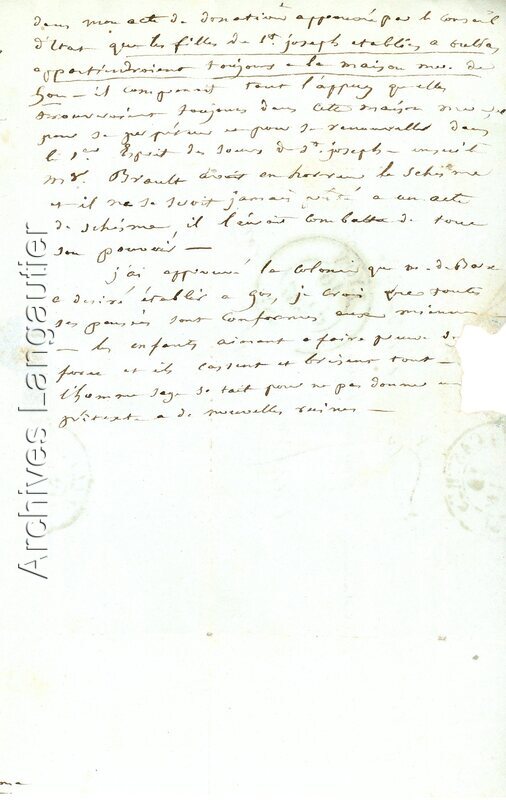 dans mon acte de donation approuvé par le Conseil
d'Etat que les filles de St joseph etablies a
appartiendroient toujours a la maison mere de
Lyon - il comprenoit tout l'appuy qu'elles
trouveroient toujours dans cette maison mere,
pour se perpétuer et pour se renouveller dans
le 1er Esprit des sœurs de St joseph - ensuite
mr Brault avoit en horreur le schisme
et il ne se seroit jamais prêté a un acte
de schisme, il l'auroit combattu de tout
son pouvoir -
j'ai approuvé la colonie que m. de
a desiré établir a Gos, je crois que toutes
ses pensées sont conformes aux miennes
- les enfants aiment a faire preuve de
force et ils cassent et brisent tout -
l'homme sage se tait pour ne pas donner un
prétexte a de nouvelles ruines -
Archives Langautier